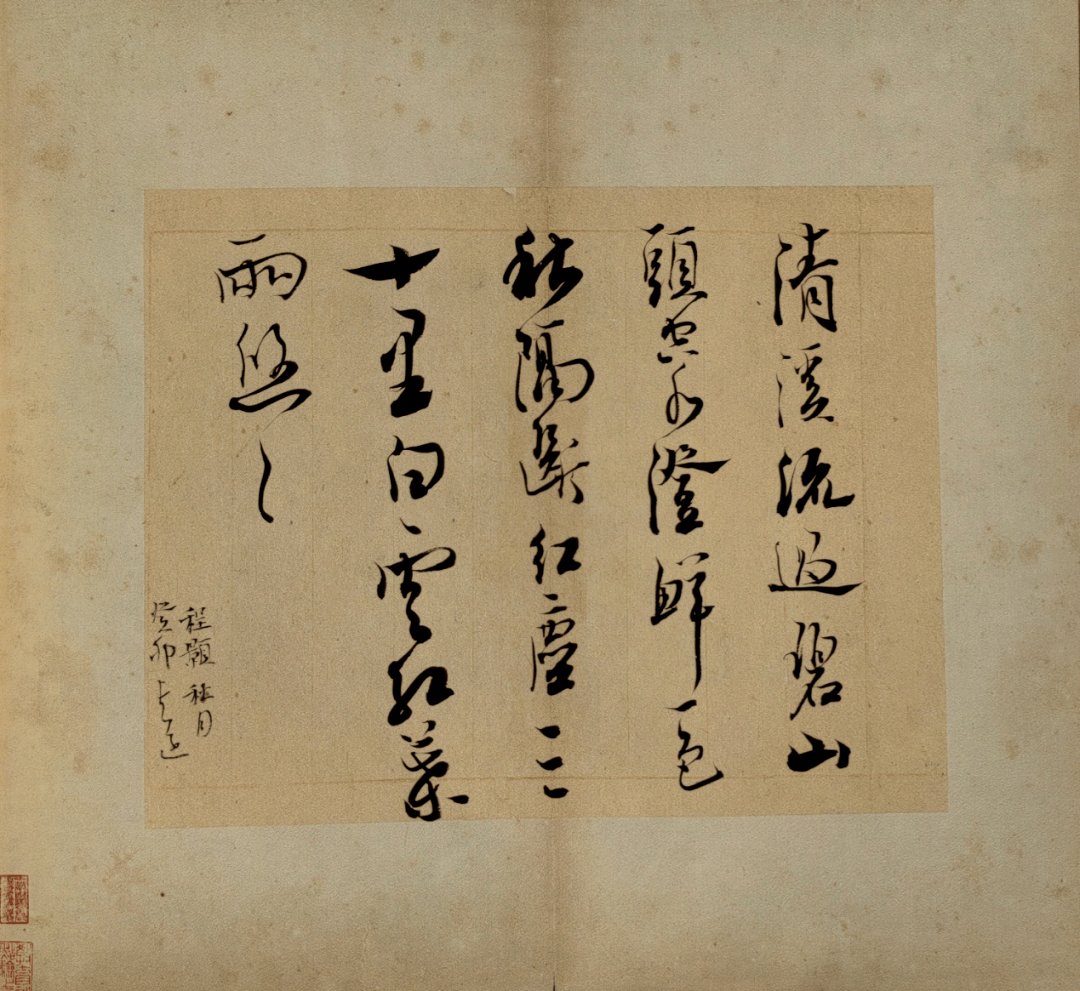 清溪流過碧山
頭空水澄鮮一色
秋隔斷紅塵三
十里白雲紅葉
兩悠々
程顥 秋月
癸卯